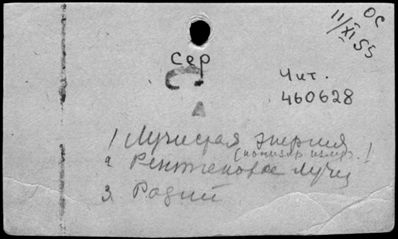 ОС
11/XI 55
сер
С
Чит.
460628
1 Лучистая энергия
(
2 Рентгеновые лучи
3 Радий